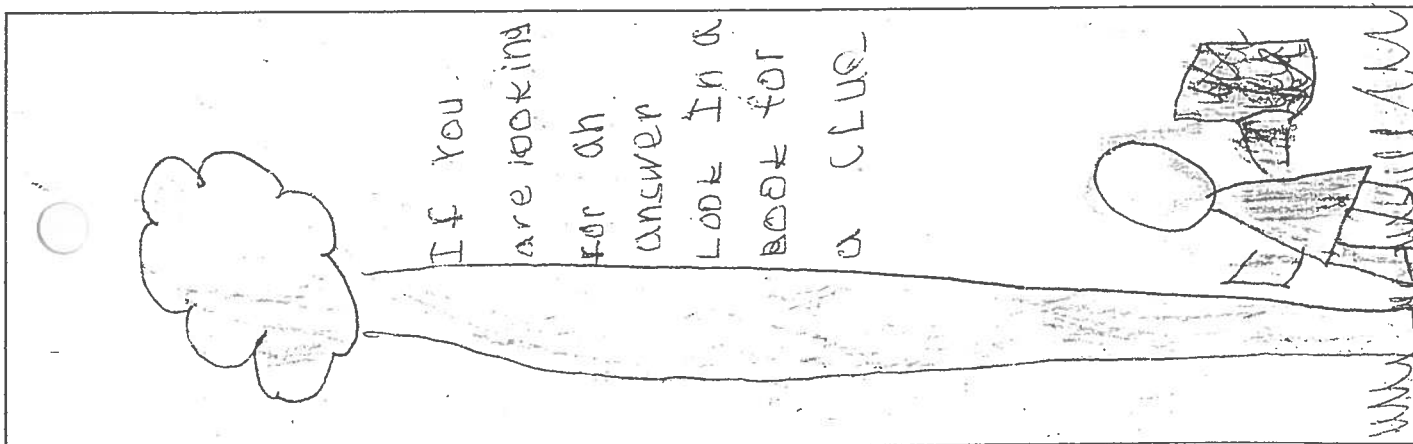 If You
are looking
for an
answer
Look In a
Book for
a CLUe